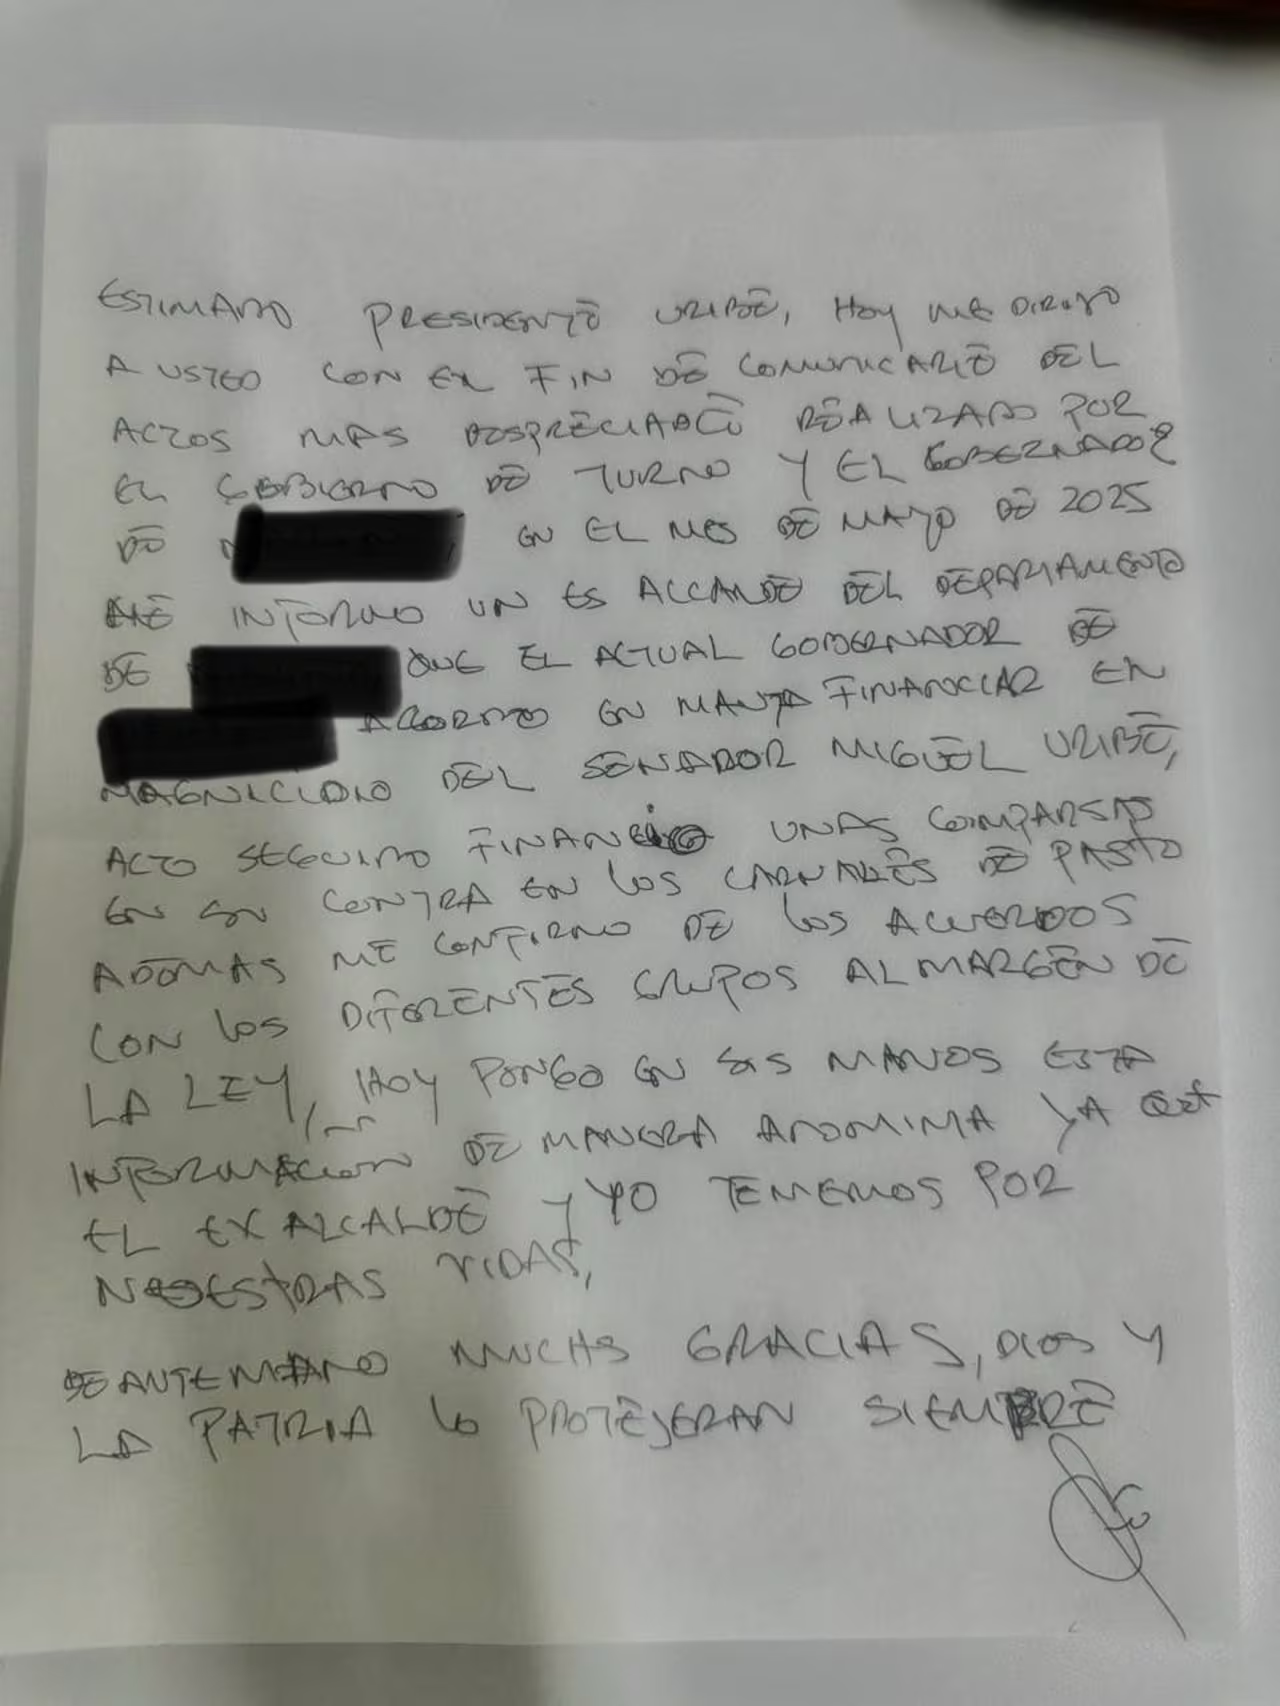 ESTIMADO PRESIDENTE URIBE, HOY ME DIRIJO
A USTED CON EL FIN DE COMUNICARLE DEL
ACTOS MAS DESPRECIABLE REALIZADO POR
EL GOBIERNO DE TURNO Y EL GOBERNADOR
DE EN EL MES DE MAYO DE 2025
ME INFORMO UN ES ALCANDE DEL DEPARTAMENTO
DE QUE EL ACTUAL GOBERNADOR DE
ACORDO EN MANTA FINANCIAR EN
MAGNICIDIO DEL SENADOR MIGUEL URIBE,
ACTO SEGUIDO FINANCIO UNAS COMPARSAS
EN SU CONTRA EN LOS CARNALES DE PASTO
ADEMAS ME CONFIRMO DE LOS ACUERDOS
CON LOS DIFERENTES GRUPOS AL MARGEN DE
LA LEY, HOY PONGO EN SUS MANOS ESTA
INFORMACION DE MANERA ANOMIMA YA QUE
EL EX ALCALDE Y YO TEMEMOS POR
NUESTRAS VIDAS,
DE ANTEMANO MUCHAS GRACIAS, DIOS Y
LA PATRIA LO PROTEJERAN SIEMPRE